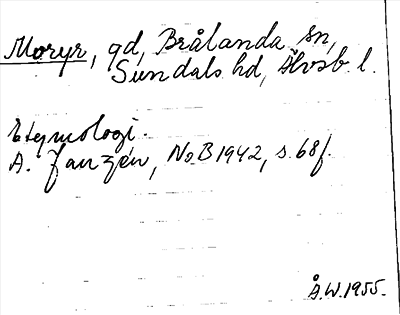 Moryr, gd, Brålanda sn,
Sundals hd, Älvsb. l.
Etymologi.
A. Janzén, NoB 1942, s. 68f.
Å.W. 1955.